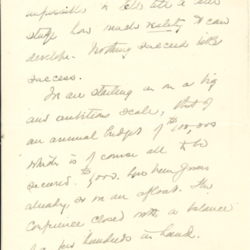 impossible to tell at a
stage how much reality I can
develope. Nothing succeeds like
success.
We are starting in on a big
and ambitious scale, that of
an annual budget of $100,000
which is of course all to be
secured. $5,000. has been given
already, so we are afloat. The
Conference closed with a balance
hundreds in hand.